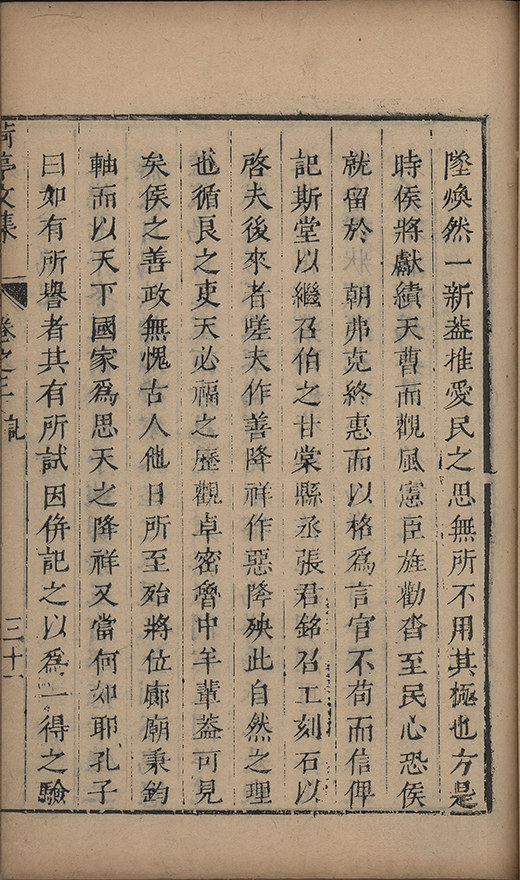 墜煥然一新葢推愛民之思無所不用其極也方是
時侯將獻績天曹而觀風憲臣旌勸沓至民心恐侯
就留於 朝弗克終惠而以格爲言官不苟而信俾
記斯堂以繼召伯之甘棠縣丞張君銘召工刻石以
啓夫後來者嗟夫作善降祥作惡降殃此自然之理
也循良之吏天必福之歷觀卓密魯中牟輩葢可見
矣侯之善政無愧古人他日所至殆將位廊廟秉鈞
軸而以天下國家爲思天之降祥又當何如耶孔子
曰如有所譽者其有所試因併記之以爲一得之驗
荷亭文集 卷之 記 三十